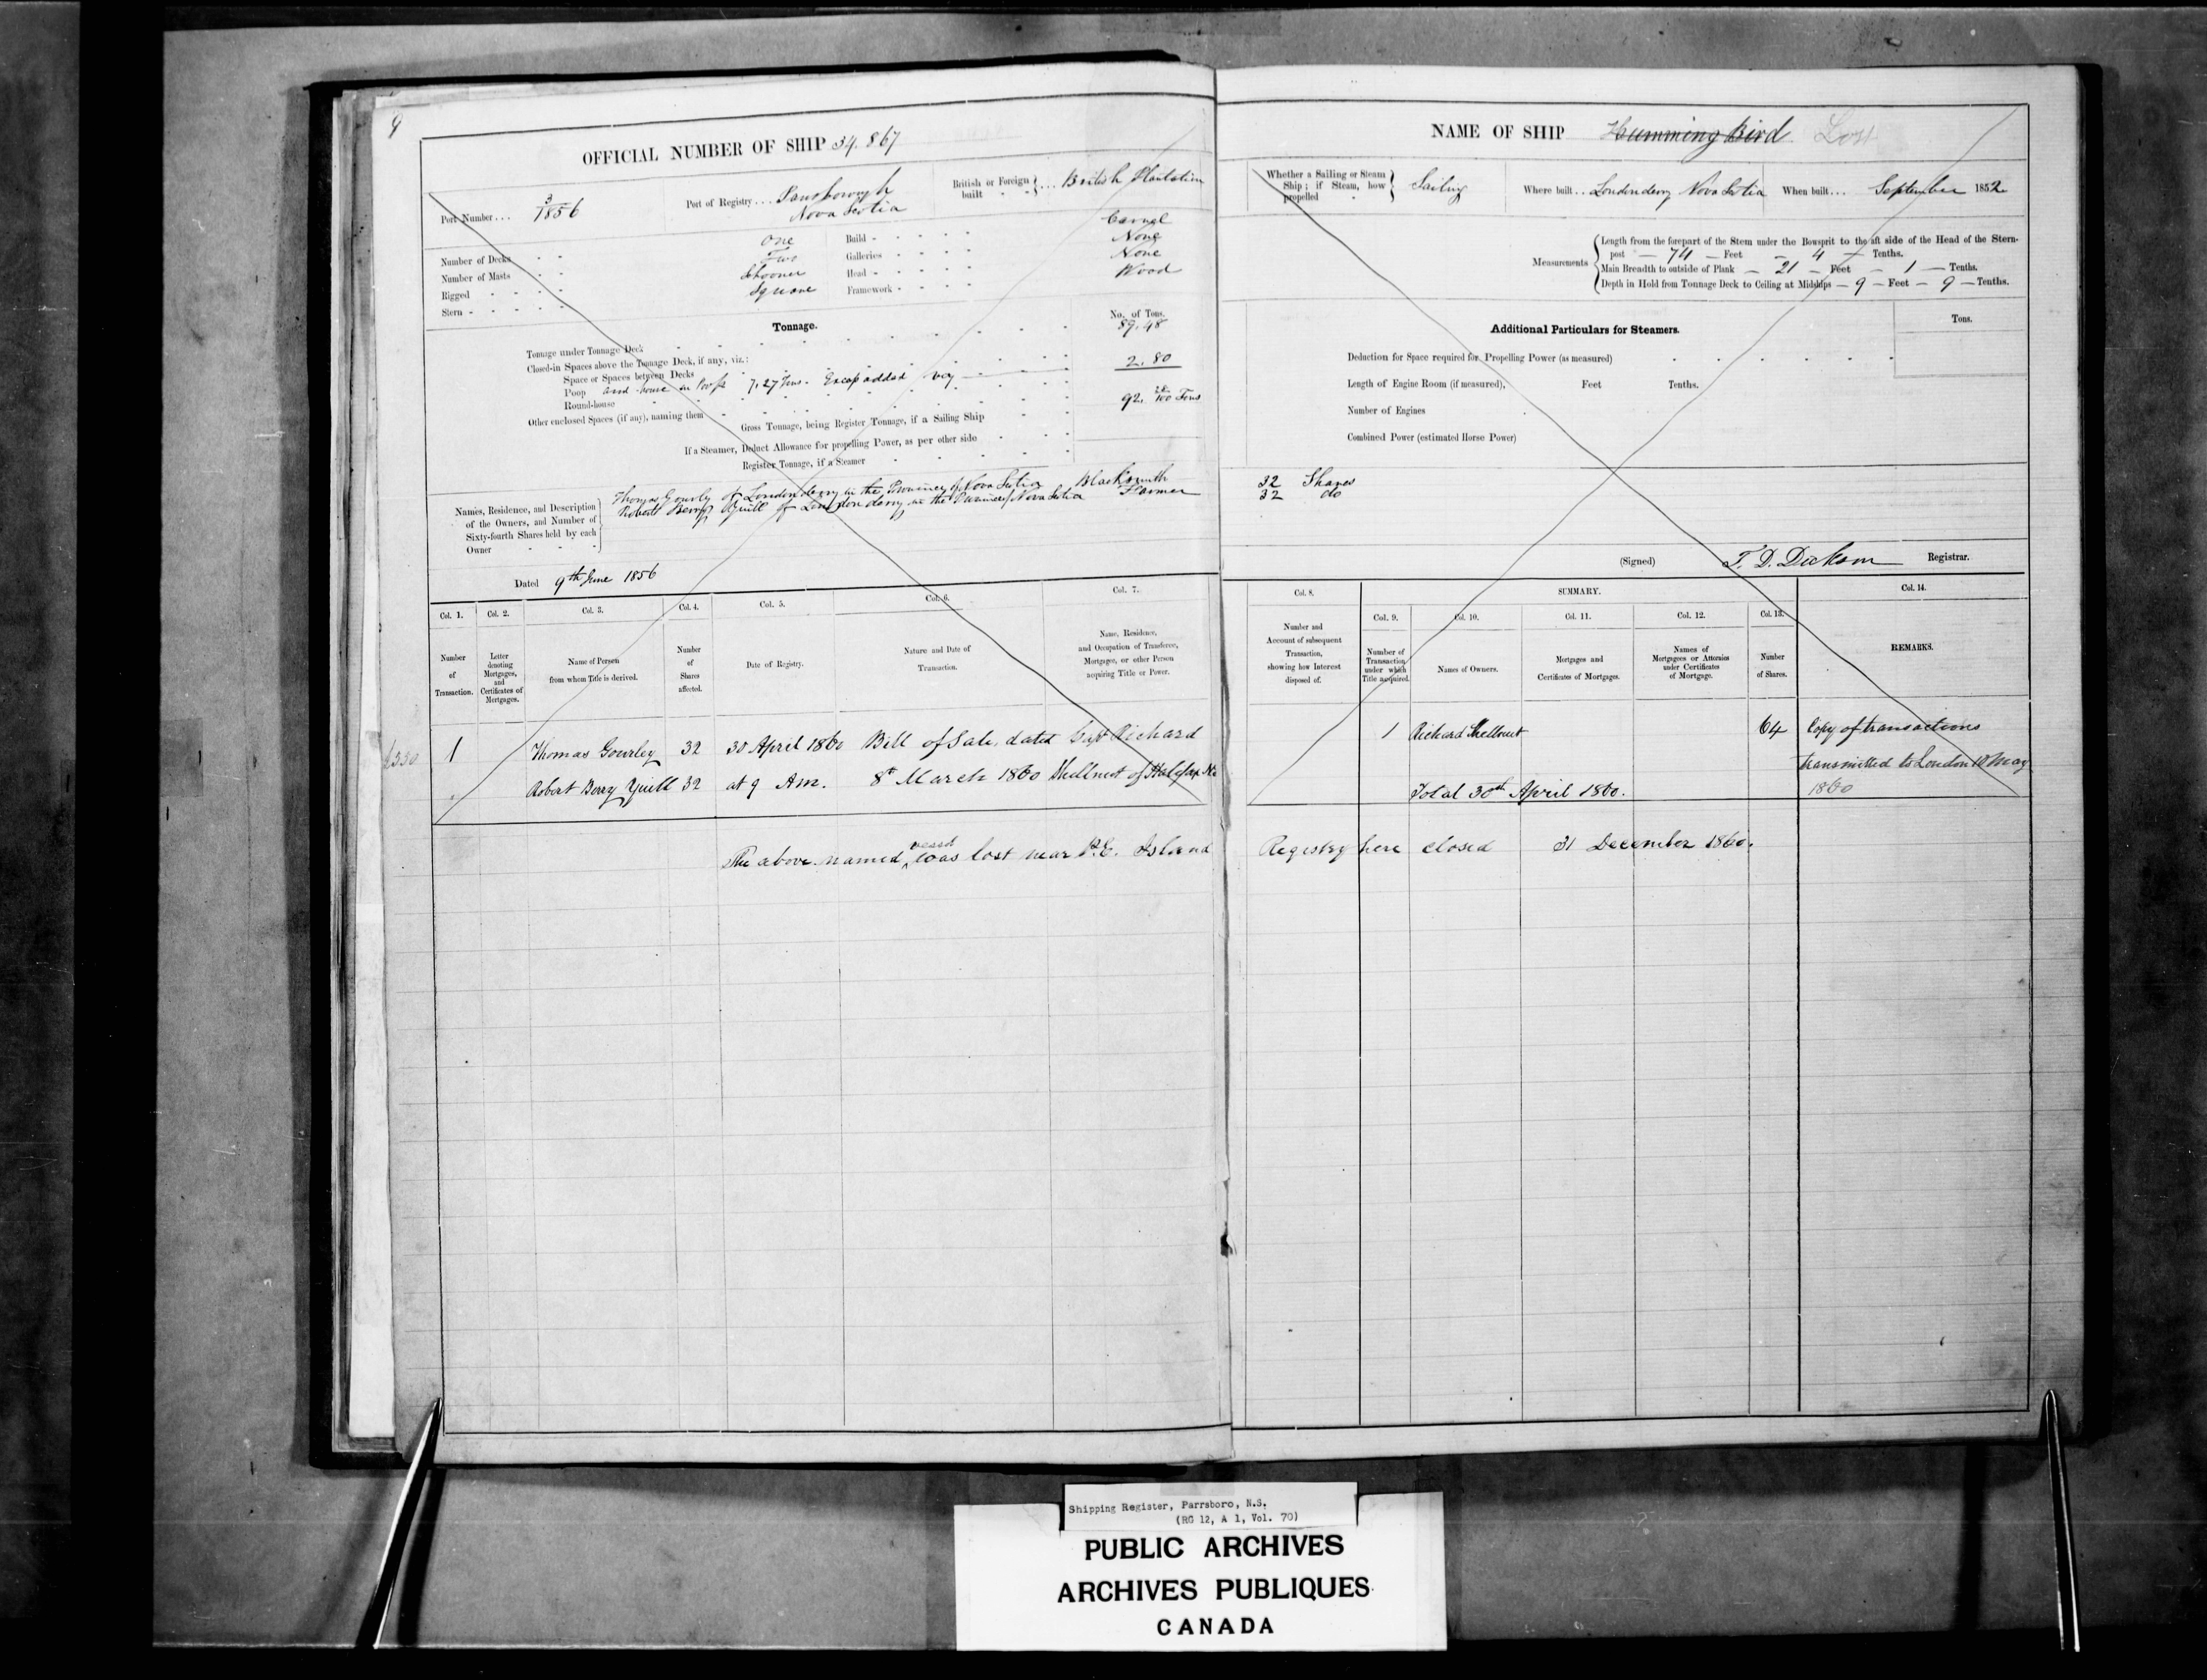 9
OFFICIAL NUMBER OF SHIP 34.867
Port Number... 3/1856
Port of Registry... Parrsborough Nova Scotia
British or Foreign built ... British Plantation
Number of Decks - - One
Number of Masts - - Two
Rigged - - - - Schooner
Stern - - - - - Square
Build - - - - - Carvel
Galleries - - - - None
Head - - - - - None
Framework - - - - Wood
Tonnage.
No. of Tons.
Tonnage under Tonnage Deck 89.48
Closed-in Spaces above the Tonnage Deck, if any, viz.:
Space or Spaces between Decks
Poop and house in Poop 7.27 Tons. Excess added 2.80
Round-house
Other enclosed Spaces (if any), naming them
Gross Tonnage, being Register Tonnage, if a Sailing Ship 92. 28/100 Tons
If a Steamer, Deduct Allowance for propelling Power, as per other side
Register Tonnage, if a Steamer
Names, Residence, and Description of the Owners, and Number of Sixty-fourth Shares held by each Owner
Thomas Gourly of Londonderry in the Province of Nova Scotia Blacksmith
Robert Berry Yuill of Londonderry in the Province of Nova Scotia Farmer
Dated 9th June 1856
Col. 1. Col. 2. Col. 3. Col. 4. Col. 5. Col. 6. Col. 7.
Number of Transaction.
Letter denoting Mortgages, and Certificates of Mortgages.
Name of Person from whom Title is derived.
Number of Shares affected.
Date of Registry.
Nature and Date of Transaction.
Name, Residence, and Occupation of Transferee, Mortgagee, or other Person acquiring Title or Power.
1 Thomas Gourley 32 30 April 1860 Bill of Sale, dated Capt Richard
Robert Berry Yuill 32 at 9 Am. 8th March 1860 Shellnut of Halifax Ns
The above named vessel was lost near P.E. Island
NAME OF SHIP Humming Bird Lost
Whether a Sailing or Steam Ship; if Steam, how propelled - Sailing
Where built... Londonderry Nova Scotia
When built... September 1852
Measurements
Length from the forepart of the Stem under the Bowsprit to the aft side of the Head of the Stern-
post — 74 — Feet — 4 — Tenths.
Main Breadth to outside of Plank — 21 — Feet — 1 — Tenths.
Depth in Hold from Tonnage Deck to Ceiling at Midships — 9 — Feet — 9 — Tenths.
Additional Particulars for Steamers.
Tons.
Deduction for Space required for Propelling Power (as measured)
Length of Engine Room (if measured), Feet Tenths.
Number of Engines
Combined Power (estimated Horse Power)
32 Shares
32 do
(Signed) T. D. Dickson Registrar.
Col. 8.
SUMMARY.
Col. 14.
Col. 9. Col. 10. Col. 11. Col. 12. Col. 13.
Number and Account of subsequent Transaction, showing how Interest disposed of.
Number of Transaction under which Title acquired.
Names of Owners.
Mortgages and Certificates of Mortgages.
Names of Mortgagees or Attornies under Certificates of Mortgage.
Number of Shares.
REMARKS.
1 Richard Shellnut 64 Copy of transactions
transmitted to London 10 May
Total 30th April 1860. 1860
Registry here closed 31 December 1860.
Shipping Register, Parrsboro, N.S.
(RG 12, A 1, Vol. 70)
PUBLIC ARCHIVES
ARCHIVES PUBLIQUES
CANADA